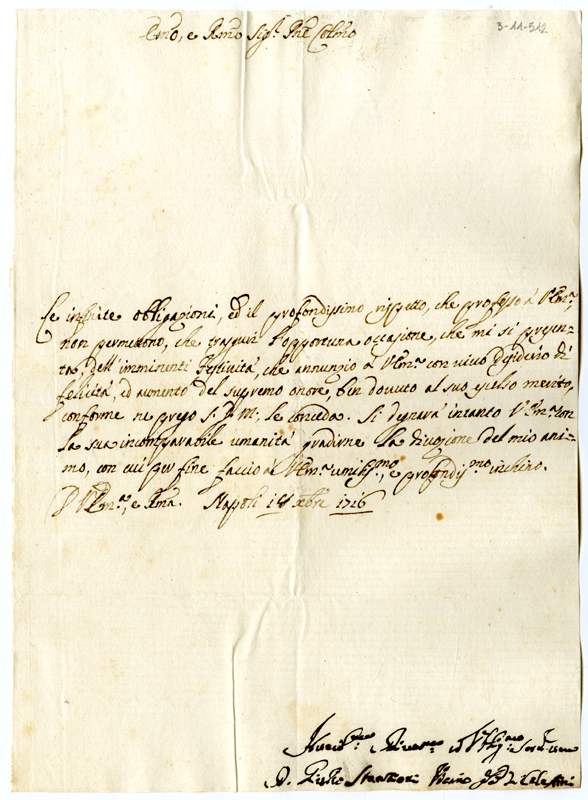 3-14-512
Emo, e Rmo Sig.r Pne Colmo
Le infinite obligazioni, ed il profondissimo rispetto, che professo à V.Em.a,
non permettono, che trascuri l'opportuna occasione, che mi si presen-
ta, dell'imminenti Festività, che annunzio à V.Em.a con vivo desiderio di
felicità, ed aumento del supremo onore, ben dovuto al suo eccelso merito,
conforme ne prego S. D. M., le conceda. Si degnarà intanto V.Em.a con
la sua incomparabile umanità gradirne la divozione del mio ani-
mo, con cui per fine faccio à V.Em.a umiliss.mo, e profondiss.mo inchino.
D V.Em.a, e Rma. Napoli 14 Xbre 1716
D. Pietro